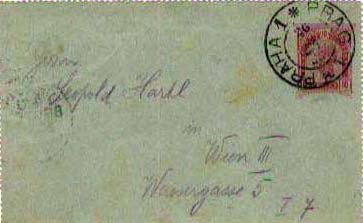 PRAG 1 * PRAHA 1 *
Herrn
Leopold Hartl
in
Wien III
Wassergasse 5
I 7